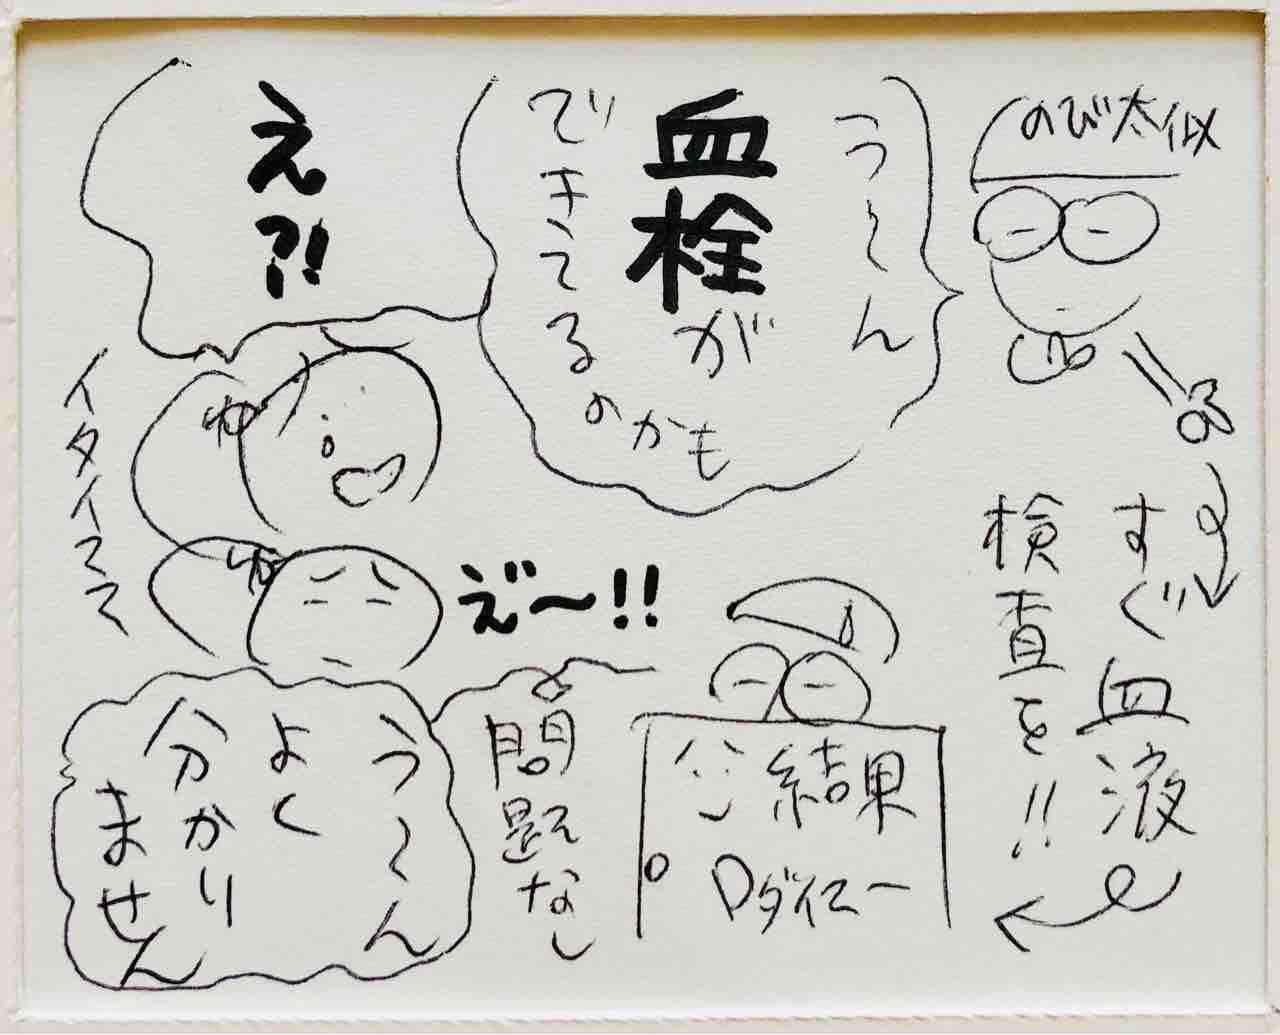 のび太似
う〜ん
血栓が
できてるのかも
え?!
イタイてて
すぐ血液
検査を!!
え゛〜!!
結果
Dダイマー
問題なし
う〜ん
よく
分かり
ません